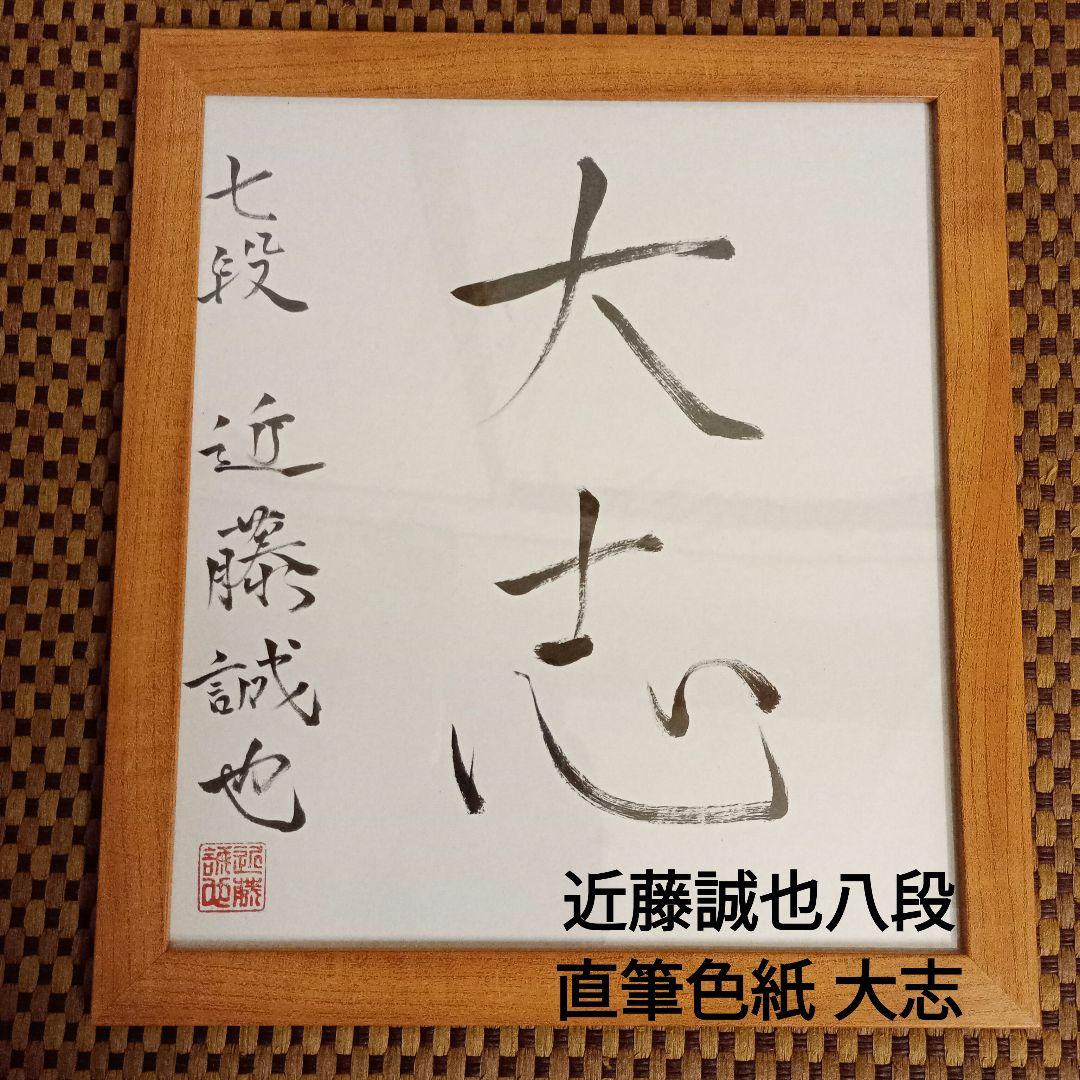 大志
七段 近藤誠也
近藤誠也
近藤誠也八段
直筆色紙 大志